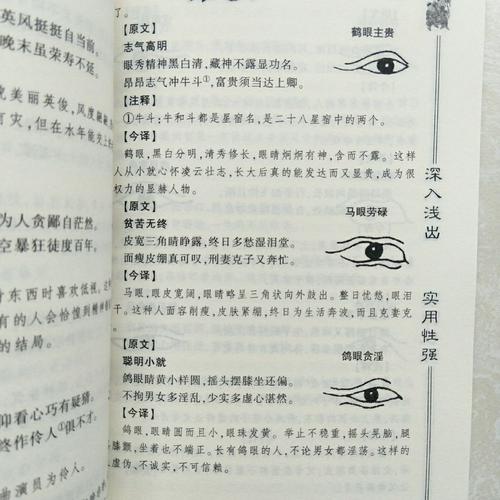 英风挺挺自当前。
晚末虽荣寿不延。
美丽英俊,风度
灾,但在水年能
为人贪鄙自茫然。
空暴狂徒度百年。
东西时喜欢低视。
有的人会恰
的结局。
仰看心巧有疑猜。
终作伶人①俱不才。
演员为伶人。
了。
【原文】
志气高明
眼秀精神黑白清,藏神不露显功名。
昂昂志气冲牛斗①,富贵须当达上卿。
鹤眼主贵
【注释】
①牛斗:牛和斗都是星宿名,是二十八星宿中的两个。
【今译】
鹤眼,黑白分明,清秀修长,眼睛炯炯有神,含而不露。这样
人从小就心怀凌云壮志,长大后真的能发达而又显贵,成为很
权力的显赫人物。
【原文】
贫苦无终
皮宽三角睛睁露,终日多愁湿泪堂。
面瘦皮绷真可叹,刑妻克子又奔忙。
马眼劳碌
【今译】
马眼,眼皮宽阔,眼睛略呈三角状向外鼓出。整日忧愁,眼泪
干。这种人面容削瘦,皮肤紧绷,终日为生活奔波,而且克妻克
。
【原文】
聪明小就
鸽眼睛黄小样圆,摇头摆膝坐还偏。
不拘男女多淫乱,少实多虚心湛然。
鸽眼贪淫
【今译】
鸽眼,眼睛圆而且小,眼珠发黄。举止不稳重,摇头晃脑,腿
膝颤,坐着也不端正。长有鸽眼的人,不论男女都淫荡。这样的
人虚伪、不诚实,不可信赖。
深入浅出
实用性强